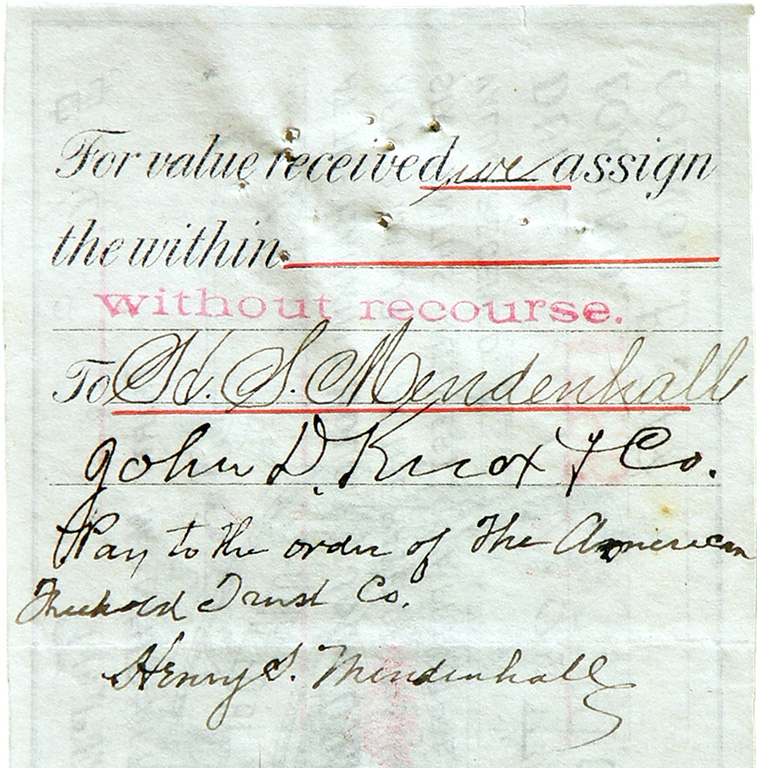 For value received, we assign
the within
without recourse.
To H. S. Mendenhall
John D. Knox & Co.
Pay to the order of The American
Freehold Trust Co.
Henry S. Mendenhall